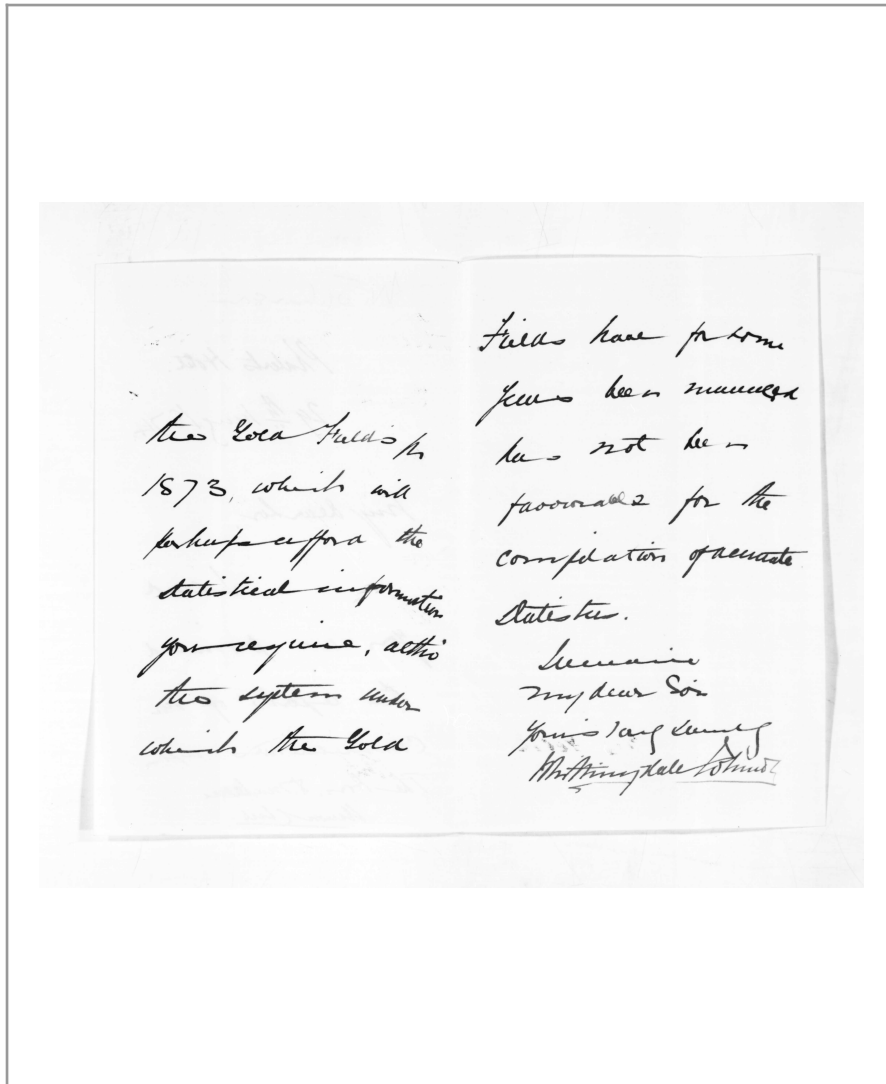 the Gold Fields for
1873, which will
perhaps afford the
statistical information
you require, altho
the system under
which the Gold
Fields have for some
years been managed
has not been
favourable for the
compilation of accurate
Statistics.
I remain
My dear Sir
Yours very